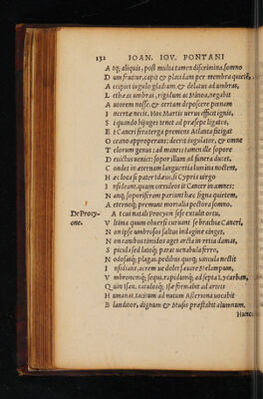 132 IOAN. IOV. PONTANI
A tq; aliquis, post multa tamen discrimina somno
D um fruitur, capit & placidam per membra quietē,
A ccipit iugulo gladium, & delatus ad umbras,
L ethæas umbras, rigidum ac negabit
A uctorem nosse, & certam deposcere pœnam
I ncertæ necis. Hoc Martis uerus efficit ignis,
S i quando bijuges tenet ad præsepe ligatos,
E t Cancri fera terga premens Atlanta fatigat
O ceano appropërans; deerit iugulator, &
T elorum genus: ad manes tamen ille sopore
D euictus ueniet: sopor illum ad funera ducet.
C ondet in æternam languentia lumina noctem,
H æc loca si pater Idæus, si Cypris uirgo
I nsideant, quum cœruleos it Cancer in amnes;
N anq; soporiferam pariunt hæc signa quietem,
A eternoq; premunt mortalia pectora somno.
De Procyone.
A t cui natali Procyon sese extulit ortu,
V ltima quum obuersi curuant se brachia Cancri,
N on ipse umbrosos saltus indagine cinget,
N on canibus timidos aget arcta in retia damas,
S picula sed latoq; parat uenabula ferro,
N odosasq; plagas, pedibus quoq; uincula nectit
I nsidians, acrem ue dolet fauore Melampum,
V mbronemq; sequi, rapidumq; ad septa Lycarbam,
Q uin etiam, catulosq; ipsa formabit ad artes
H umanas, tacitum ad nutum Asteriona uocabit
B landitor, dignum & Musis præstabit alumnum.
Hunc